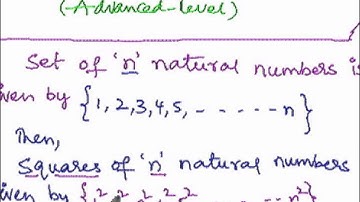 (Advanced-level)
Set of 'n' natural numbers is
iven by {1, 2, 3, 4, 5, - - - - - - n}
Then,
Squares of 'n' natural numbers
iven by {1², 2², ², 2², 2², -- n²}